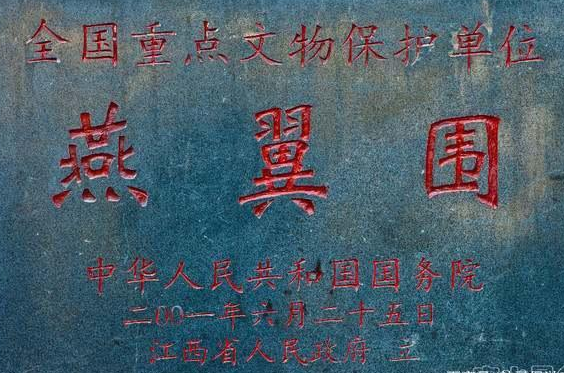 全国重点文物保护单位
燕翼围
中华人民共和国国务院
二00一年六月二十五日
江西省人民政府 立